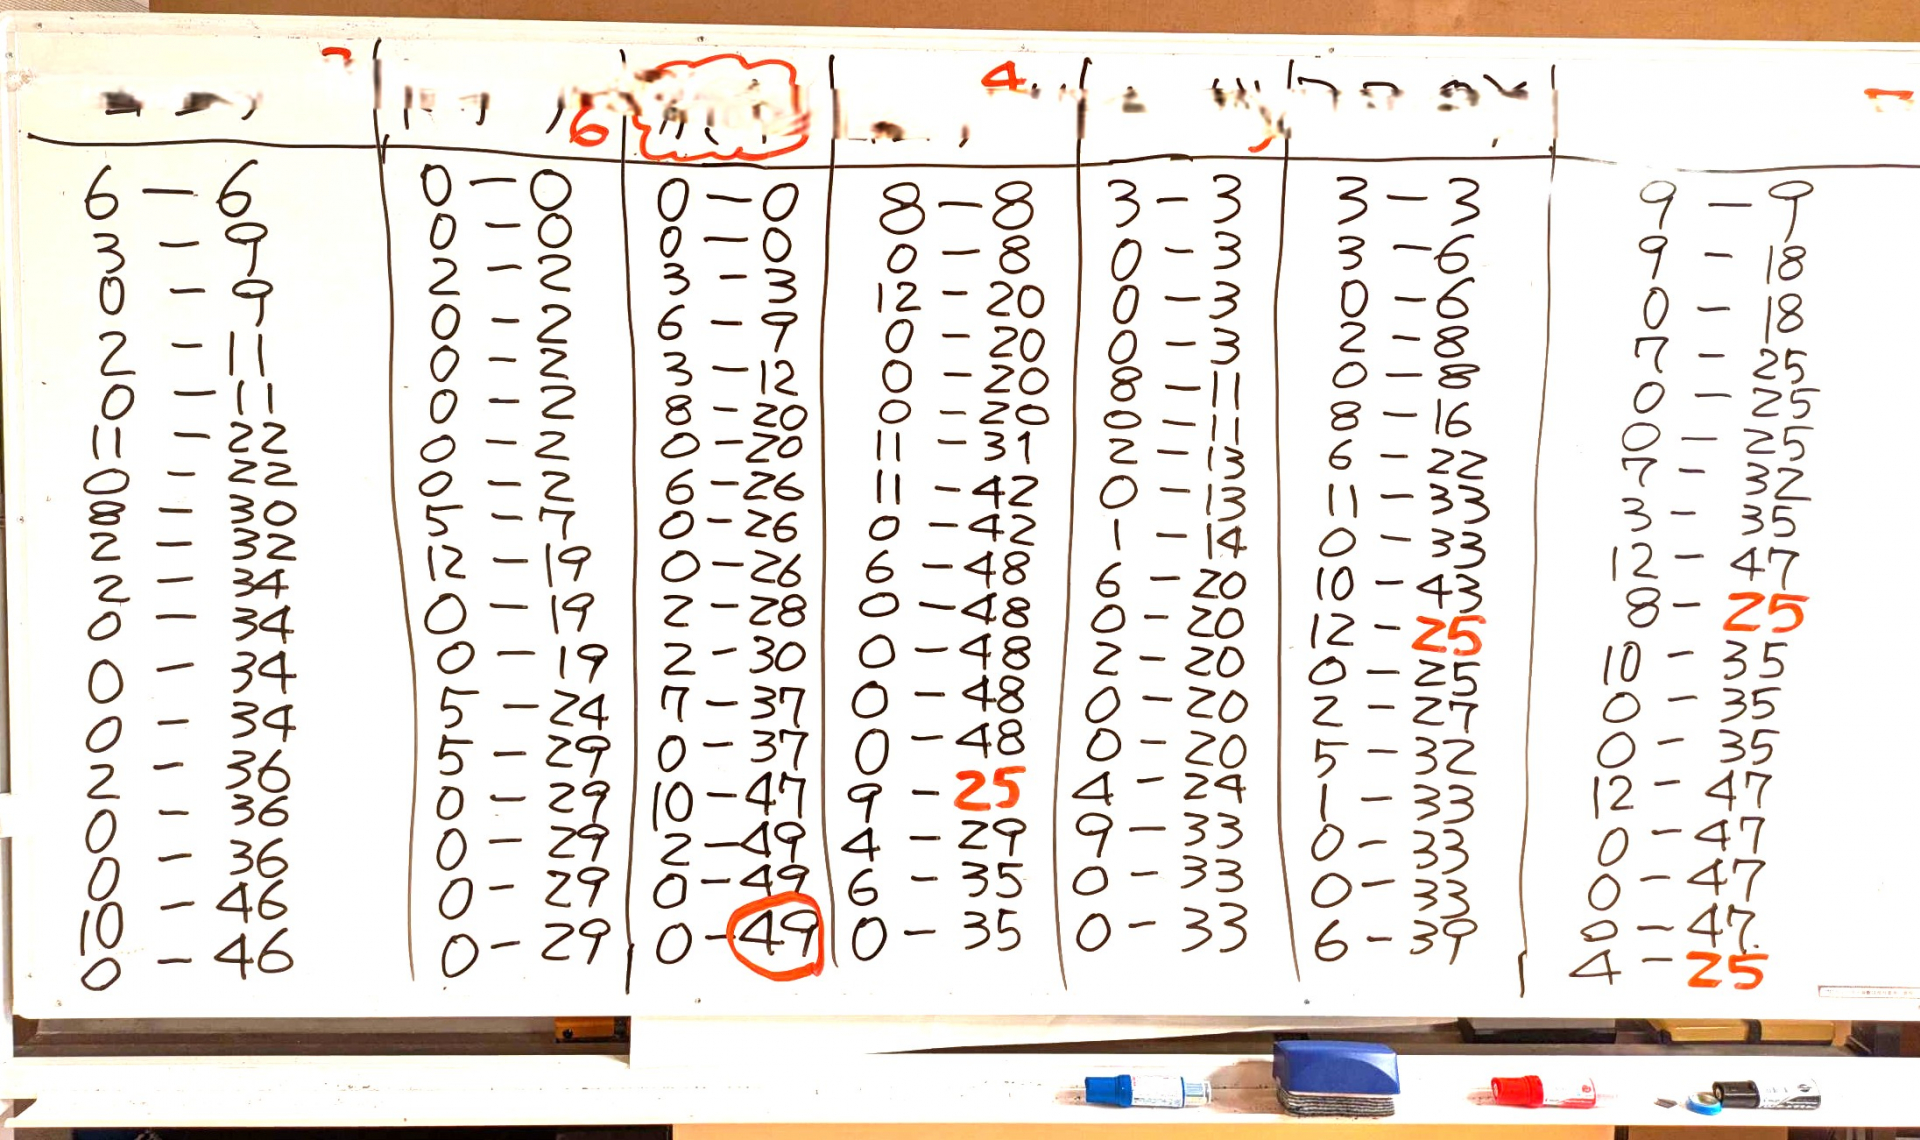 6
4
6 – 6
3 – 9
0 – 9
2 – 11
0 – 11
11 – 22
0 – 22
8 – 30
2 – 32
2 – 34
0 – 34
0 – 34
0 – 34
2 – 36
0 – 36
0 – 36
10 – 46
0 – 46
0 – 0
0 – 0
2 – 2
0 – 2
0 – 2
0 – 2
0 – 2
0 – 2
5 – 7
12 – 19
0 – 19
0 – 19
5 – 24
5 – 29
0 – 29
0 – 29
0 – 29
0 – 29
0 – 0
0 – 0
3 – 3
6 – 9
3 – 12
8 – 20
0 – 20
6 – 26
0 – 26
0 – 26
2 – 28
2 – 30
7 – 37
0 – 37
10 – 47
2 – 49
0 – 49
0 – 49
8 – 8
0 – 8
12 – 20
0 – 20
0 – 20
0 – 20
11 – 31
11 – 42
0 – 42
6 – 48
0 – 48
0 – 48
0 – 48
0 – 48
9 – 25
4 – 29
6 – 35
0 – 35
3 – 3
0 – 3
0 – 3
0 – 3
8 – 11
0 – 11
2 – 13
0 – 13
1 – 14
6 – 20
0 – 20
2 – 20
0 – 20
0 – 20
4 – 24
9 – 33
0 – 33
0 – 33
3 – 3
3 – 6
0 – 6
2 – 8
0 – 8
8 – 16
6 – 22
11 – 33
0 – 33
10 – 43
12 – 25
0 – 25
2 – 27
5 – 32
1 – 33
0 – 33
0 – 33
6 – 39
9 – 9
9 – 18
0 – 18
7 – 25
0 – 25
0 – 25
7 – 32
3 – 35
12 – 47
8 – 25
10 – 35
0 – 35
0 – 35
12 – 47
0 – 47
0 – 47
0 – 47
4 – 25